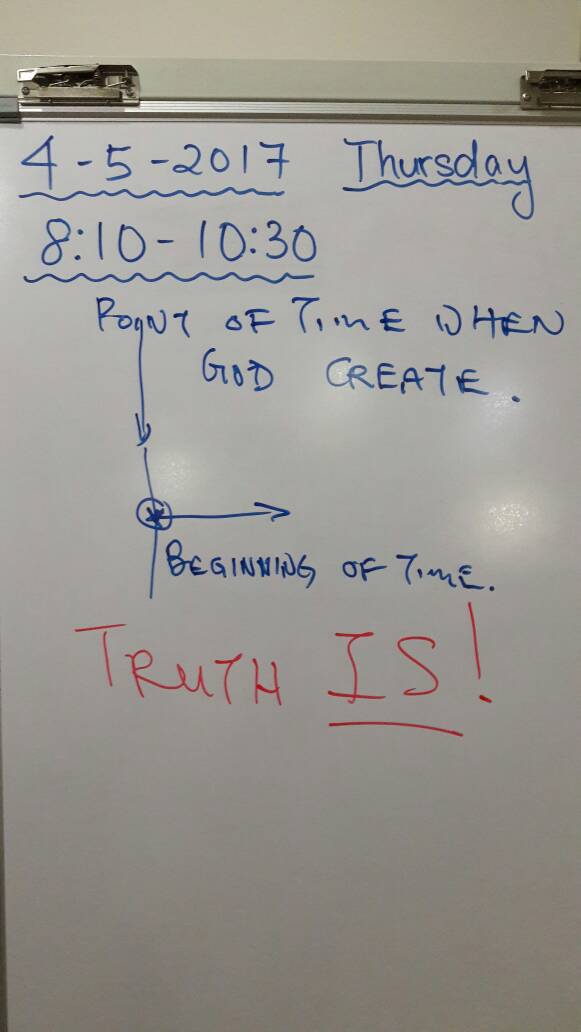 4-5-2017 Thursday
8:10-10:30
POINT OF TIME WHEN
GOD CREATE.
BEGINNING OF TIME.
TRUTH IS!